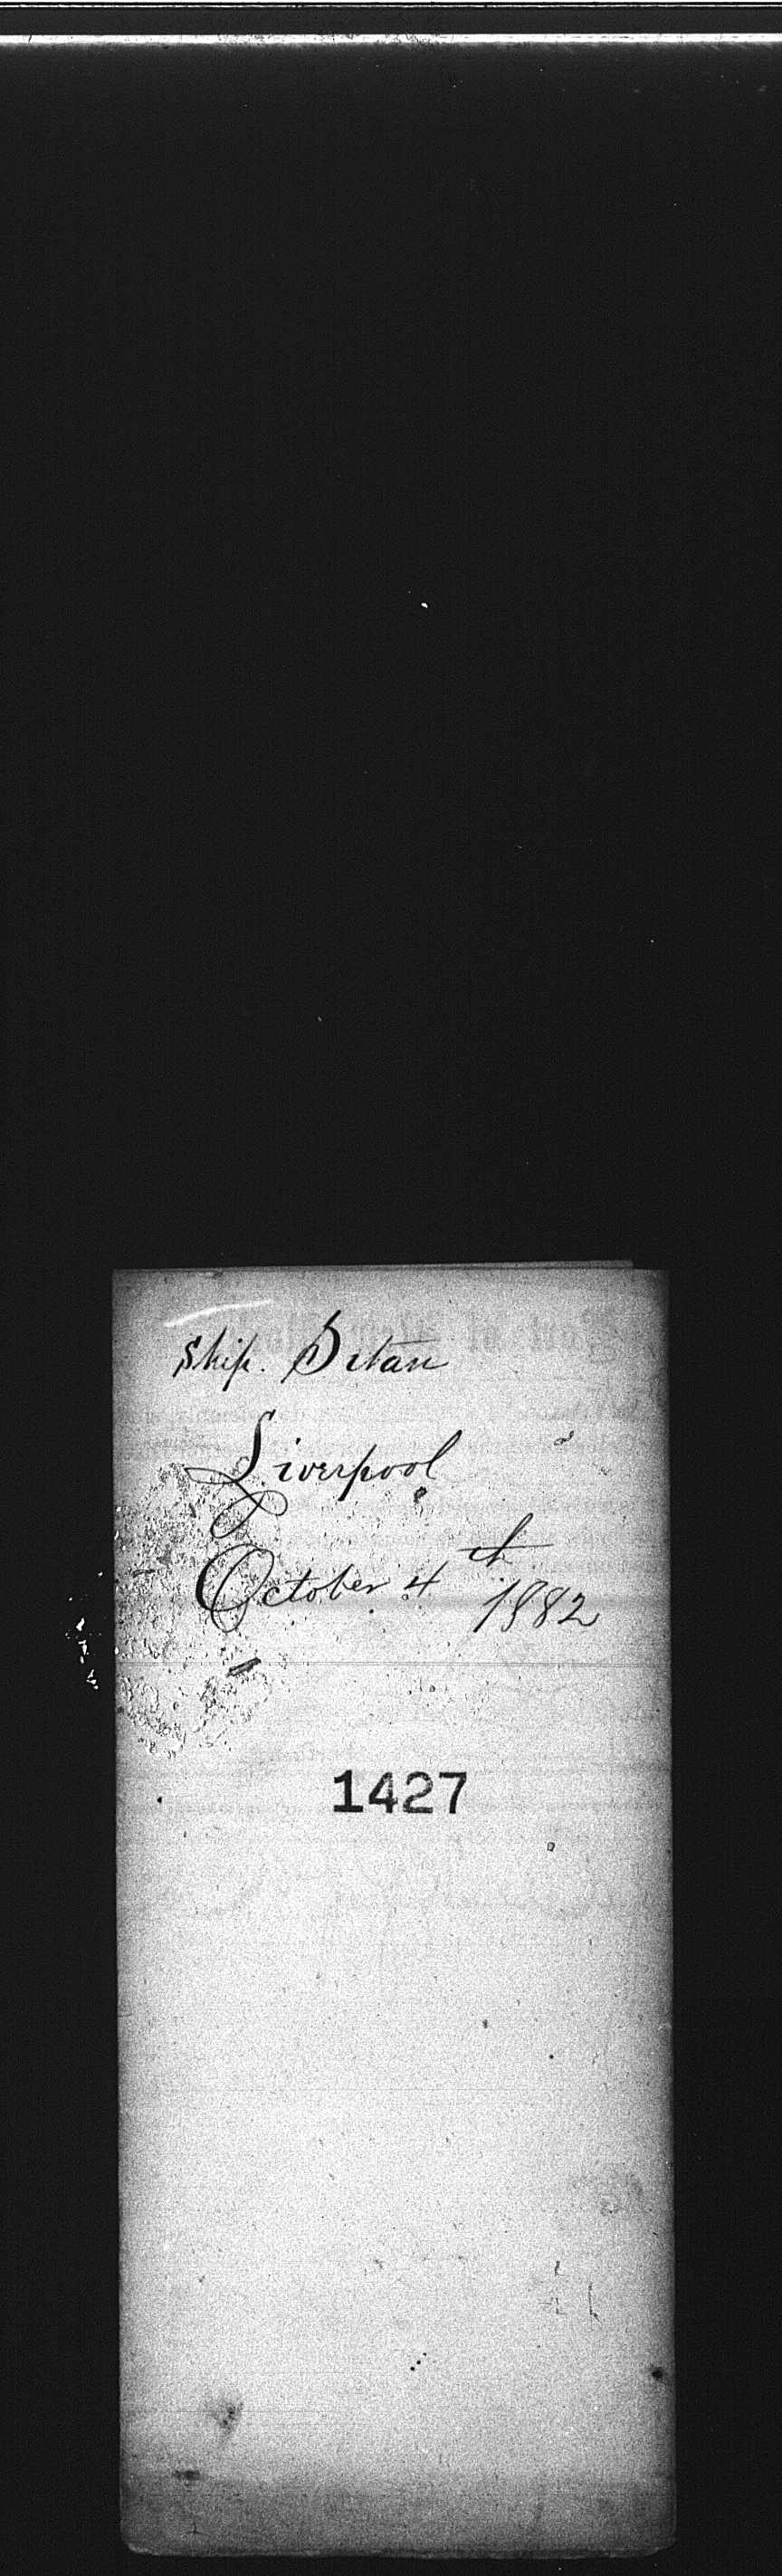 Ship. Titan
Liverpool
October 4th 1882
1427